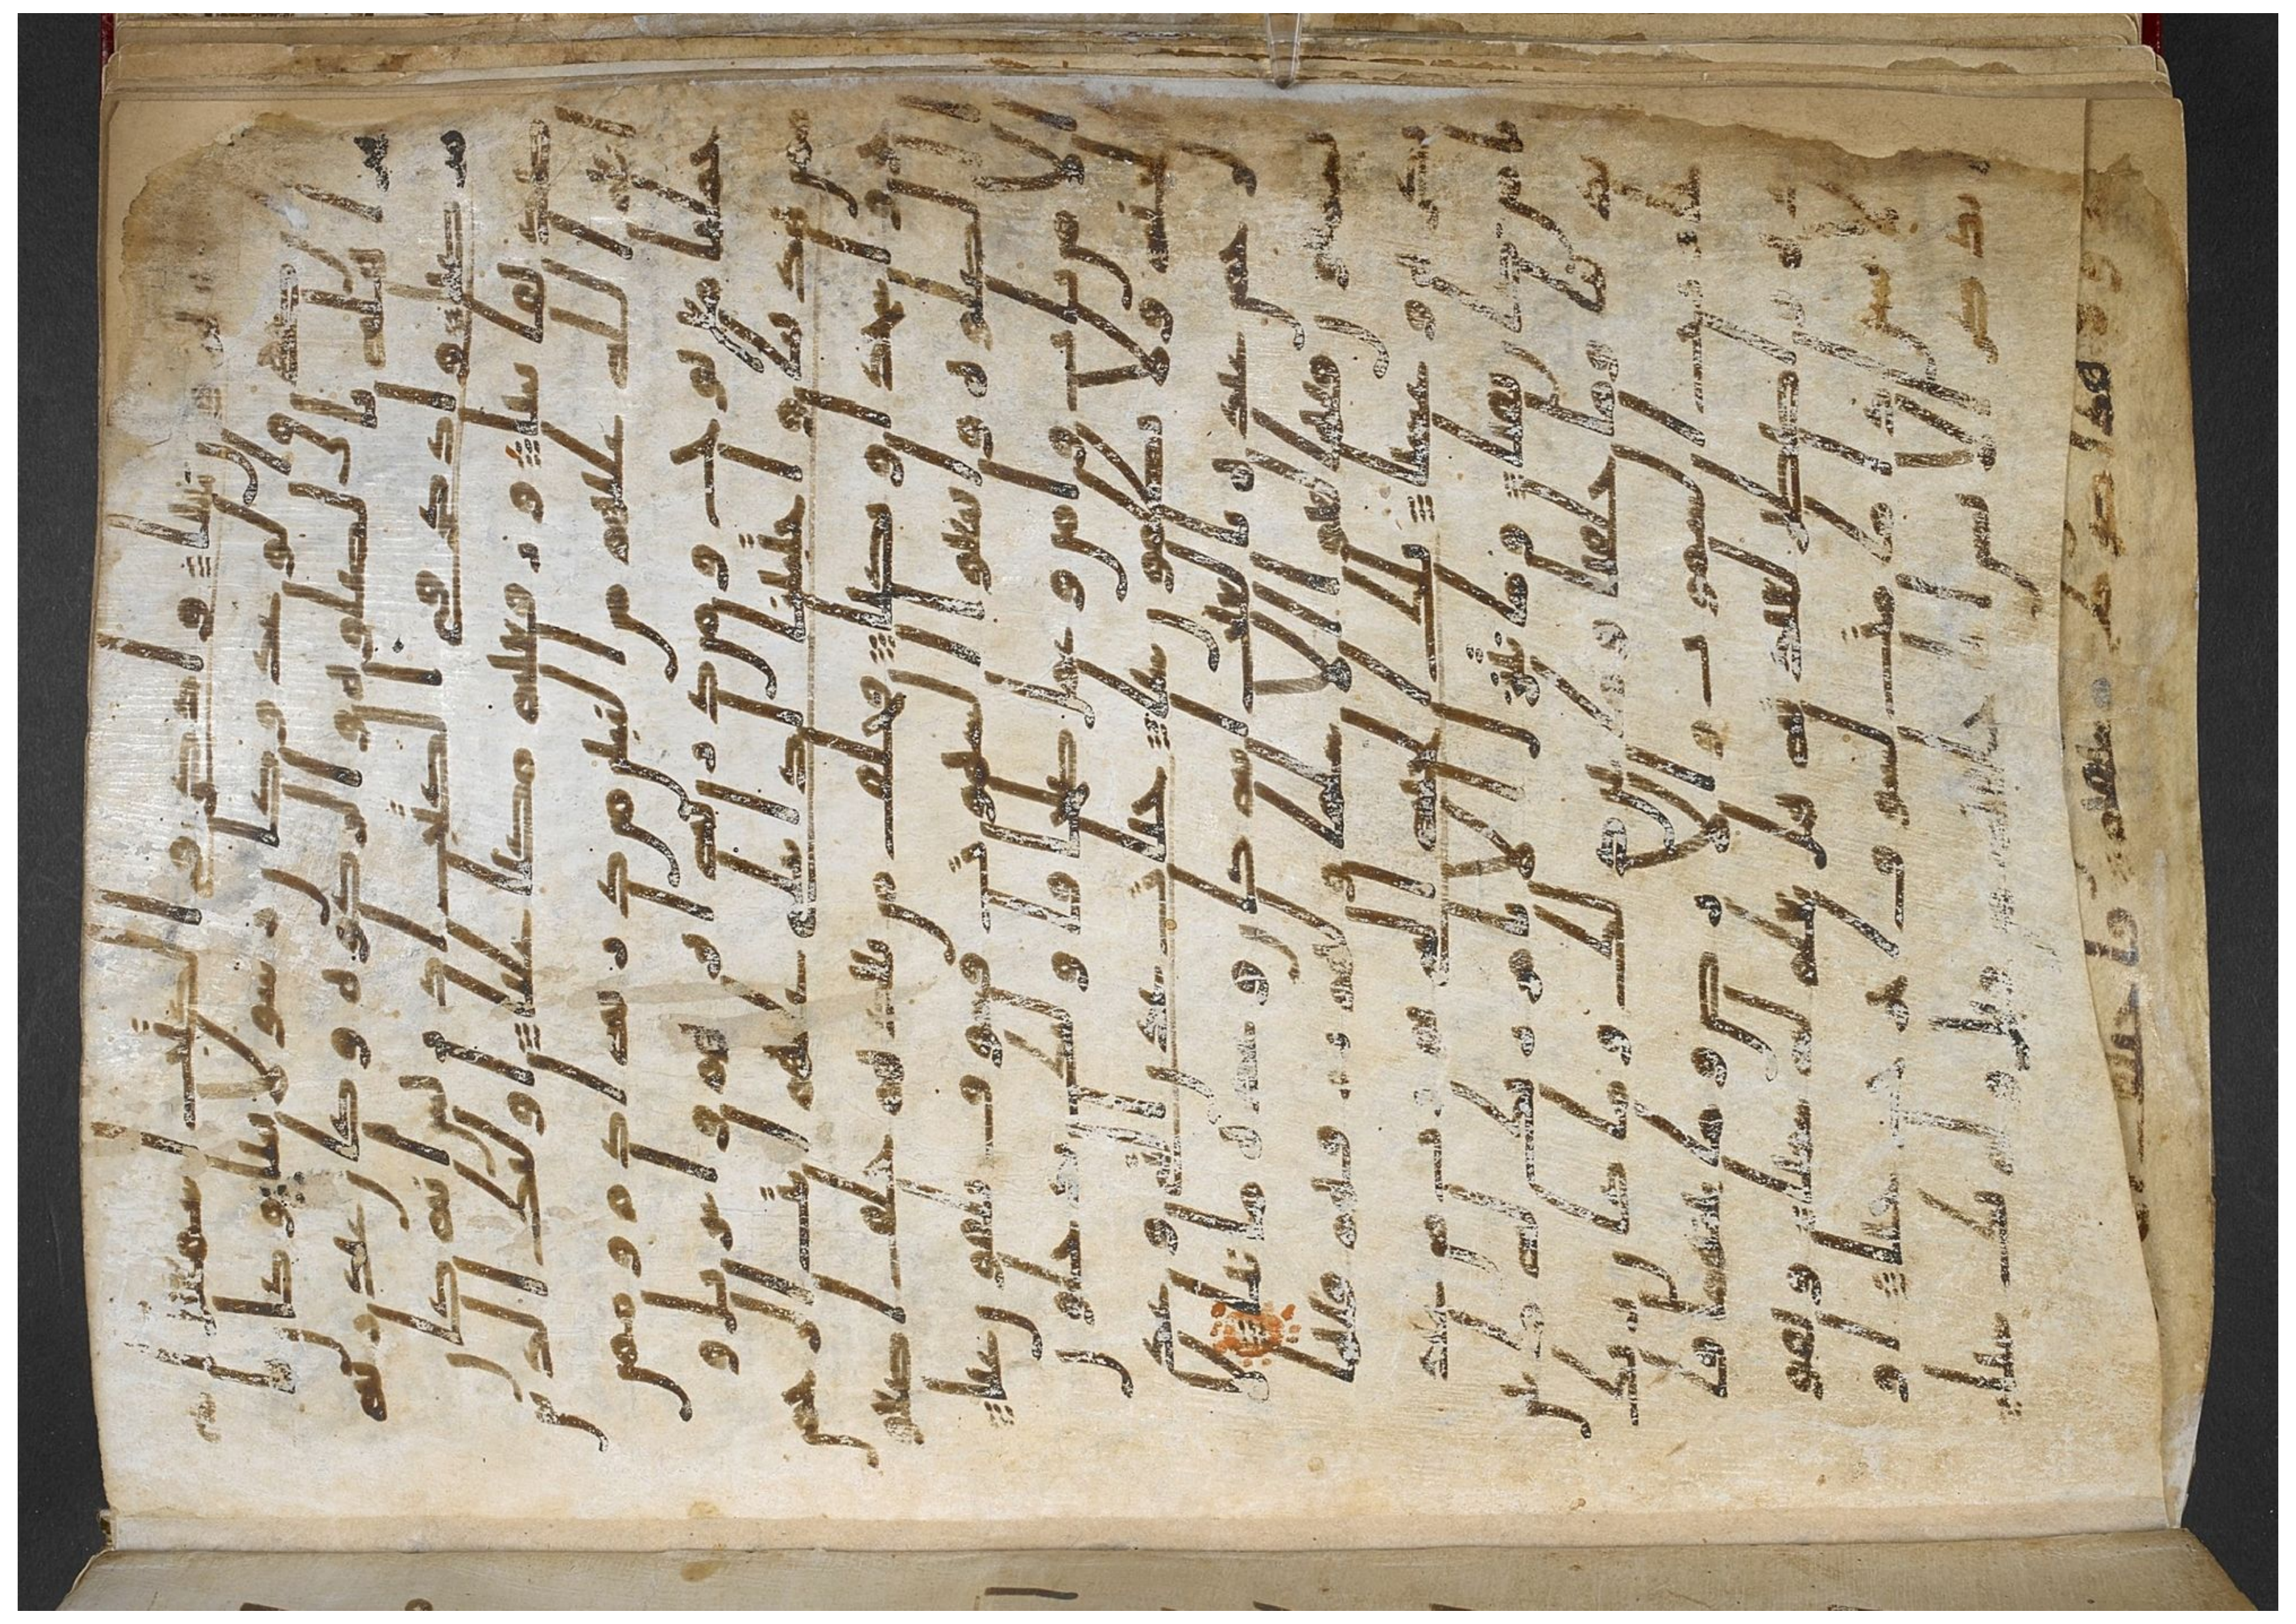 هرون نبيا واذكر في الكتب اسمعيل ا
نه كان صدق الوعد وكان رسولا نبيا وكا
ن يامر اهله بالصلوه والزكوه وكان عند ربه
مرضيا واذكر في الكتب ادريس انه كا
ن صديقا نبيا ورفعنه مكنا عليا اولئك الذين
انعم الله عليهم من النبين من ذريه ادم وممن
حملنا مع نوح ومن ذريه ابرهيم واسريل و
ممن هدينا واجتبينا اذا تتلى عليهم ايت الرحمن
خروا سجدا وبكيا فخلف من بعدهم خلف اضاعو
ا الصلوه واتبعوا الشهوت فسوف يلقون غيا
الا من تاب وامن وعمل صلحا فاولئك يدخلون
الجنه ولا يظلمون شيا جنت عدن التي وعد
الرحمن عبده بالغيب انه كان وعده ماتيا لا
يسمعون فيها لغوا الا سلما ولهم رزقهم فيها
بكره وعشيا تلك الجنه التي نورث من عبد
نا من كان تقيا وما نتنزل الا بامر ربك له ما بين
ايدينا وما خلفنا وما بين ذلك وما كان ربك
نسيا رب السموت والارض وما بينهما فا
عبده واصطبر لعبدته هل تعلم له سميا ويقو
ل الانسن اذا ما مت لسوف اخرج حيا او
لا يذكر الانسن انا خلقنه من قبل ولم يك شيا